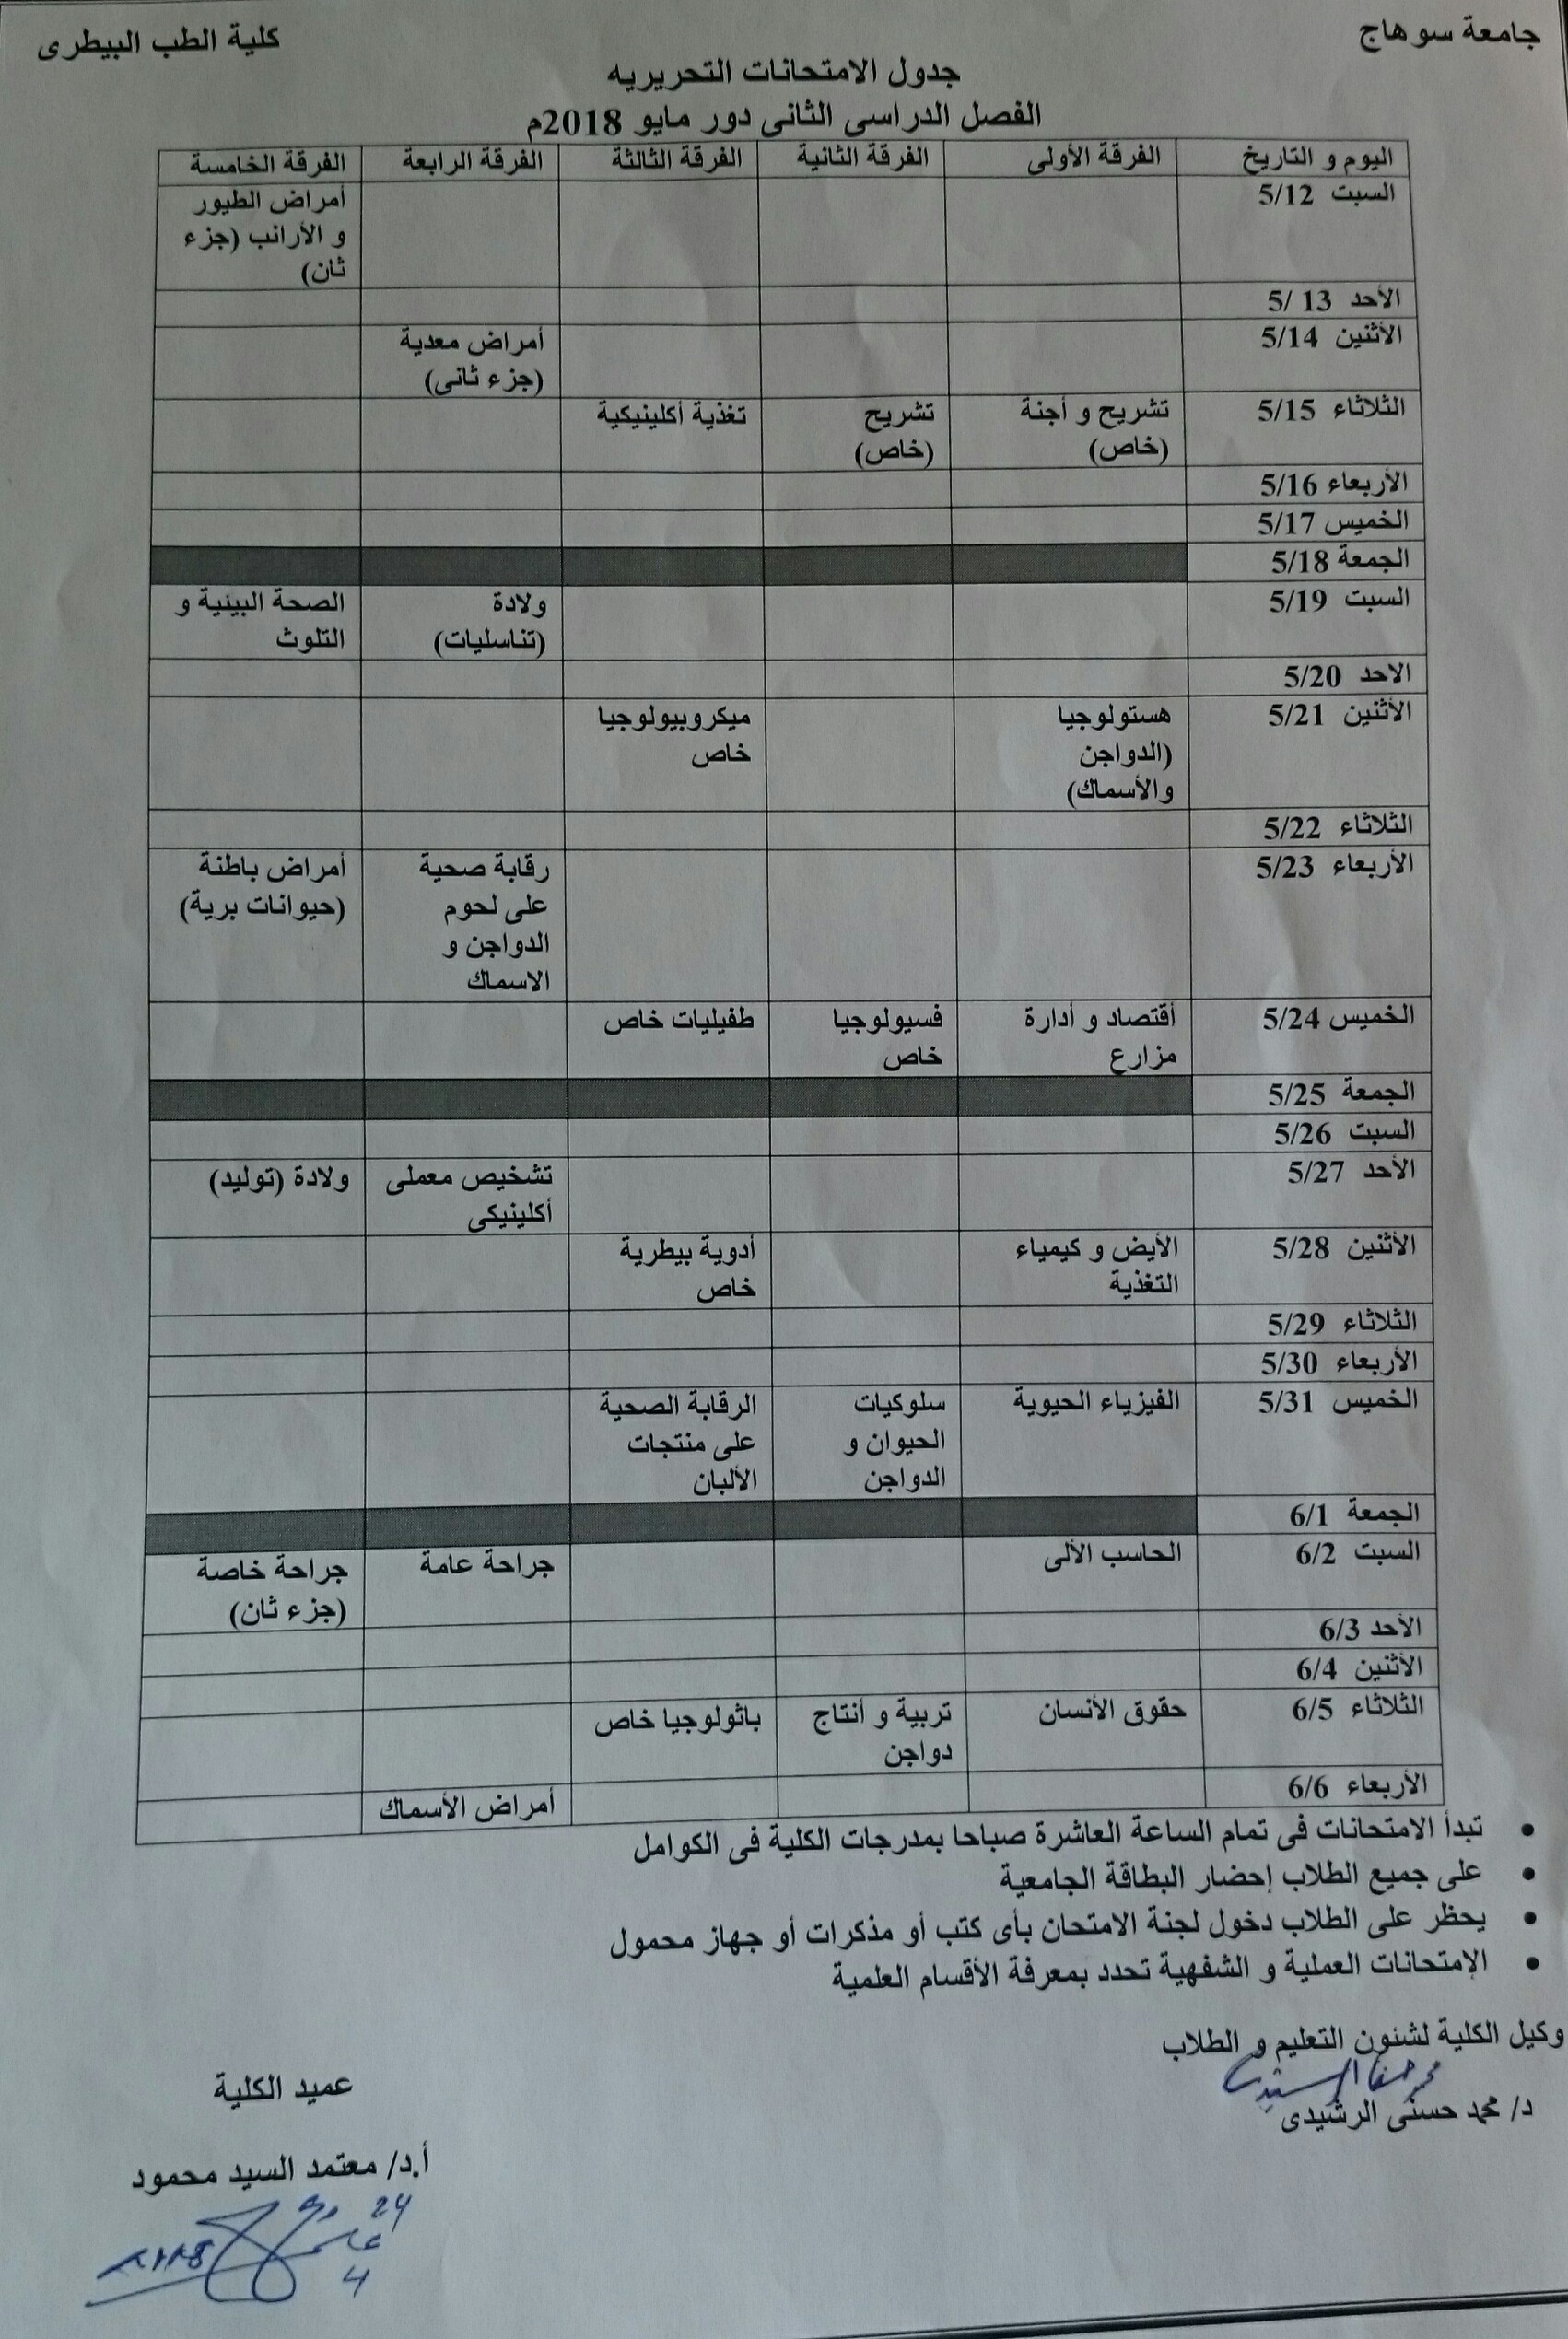 جامعة سوهاج
كلية الطب البيطرى
جدول الامتحانات التحريريه
الفصل الدراسى الثانى دور مايو 2018م
اليوم و التاريخ الفرقة الأولى الفرقة الثانية الفرقة الثالثة الفرقة الرابعة الفرقة الخامسة
السبت 5/12 أمراض الطيور
و الأرانب (جزء
ثان)
الأحد 13 /5
الأثنين 5/14 أمراض معدية
(جزء ثانى)
الثلاثاء 5/15 تشريح و أجنة تشريح تغذية أكلينيكية
(خاص) (خاص)
الأربعاء 5/16
الخميس 5/17
الجمعة 5/18
السبت 5/19 ولادة الصحة البيئية و
(تناسليات) التلوث
الاحد 5/20
الأثنين 5/21 هستولوجيا ميكروبيولوجيا
(الدواجن خاص
والأسماك)
الثلاثاء 5/22
الأربعاء 5/23 رقابة صحية أمراض باطنة
على لحوم (حيوانات برية)
الدواجن و
الاسماك
الخميس 5/24 أقتصاد و أدارة فسيولوجيا طفيليات خاص
مزارع خاص
الجمعة 5/25
السبت 5/26
الأحد 5/27 تشخيص معملى ولادة (توليد)
أكلينيكى
الأثنين 5/28 الأيض و كيمياء أدوية بيطرية
التغذية خاص
الثلاثاء 5/29
الأربعاء 5/30
الخميس 5/31 الفيزياء الحيوية سلوكيات الرقابة الصحية
الحيوان و على منتجات
الدواجن الألبان
الجمعة 6/1
السبت 6/2 الحاسب الألى جراحة عامة جراحة خاصة
(جزء ثان)
الأحد 6/3
الأثنين 6/4
الثلاثاء 6/5 حقوق الأنسان تربية و أنتاج باثولوجيا خاص
دواجن
الأربعاء 6/6 أمراض الأسماك
• تبدأ الامتحانات فى تمام الساعة العاشرة صباحا بمدرجات الكلية فى الكوامل
• على جميع الطلاب إحضار البطاقة الجامعية
• يحظر على الطلاب دخول لجنة الامتحان بأى كتب أو مذكرات أو جهاز محمول
• الإمتحانات العملية و الشفهية تحدد بمعرفة الأقسام العلمية
وكيل الكلية لشئون التعليم و الطلاب
د/ محمد حسنى الرشيدى
عميد الكلية
أ.د/ معتمد السيد محمود
24
4